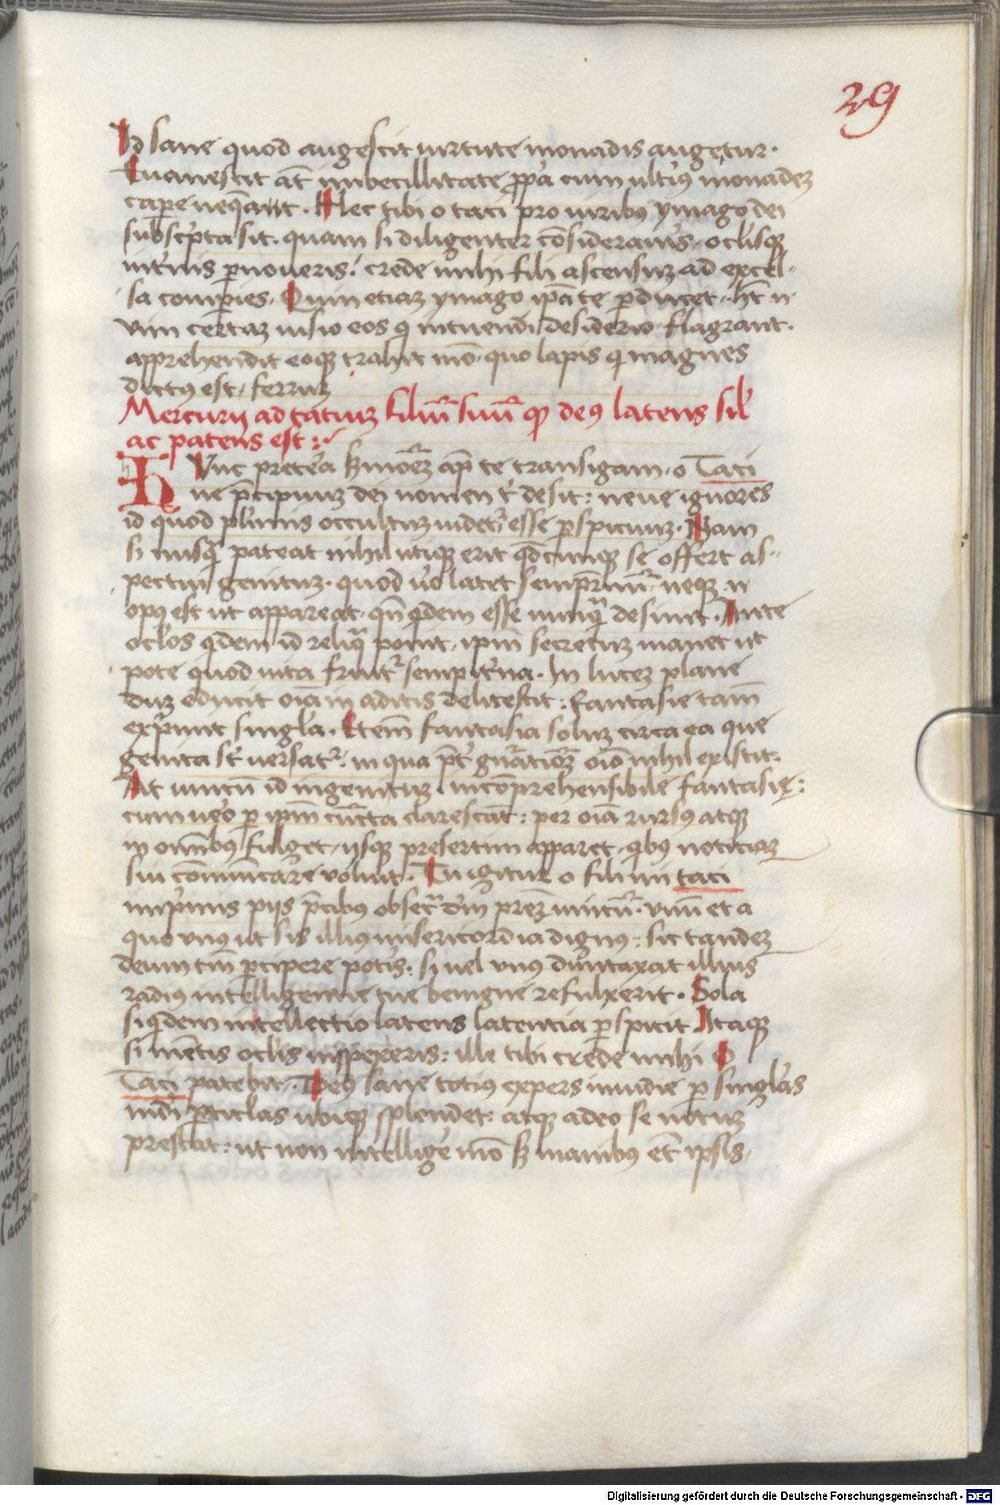 29
Id sane quod augescit uirtute monadis augetur.
Euanescit at̄ imbecillitate ꝓpͥa cum ulterius monadeʒ
capere neq̄ant. Hec tibi o taci pro uiribus ymago dei
subscͥpta sit. quam si diligenter cōsideraueris. oclīsqꝫ
int̓nis p̲noueris: crede mihi fili ascensuʒ ad excel-
sa comperies. Quin etiaʒ ymago ip̄a te p̲ducet. ht̄ n̄
uim certaʒ uisio eos qͥ intuendi desiderio flagrant.
apprehendit eoqꝫ trahit mō. quo lapis qͥ magnes
dictus est, ferruʒ
Mercurij ad tatiuʒ filiuʒ suuʒ qꝫ deꝰ latens sil̓
ac patens est:
Hunc preterea ẜmōeʒ ap̄ te transigam. o Taci
ne p̄cipuuʒ dei nomen t̓ desit: neue ignores
id quod pl̓imis occultuʒ uidet̓ esse p̲spicuuʒ. Nam
si nusq̄ pateat nihil utiqꝫ erit qd̄cunqꝫ se offert as-
pectui genituʒ. quod ūo latet sempit̓nuʒ. neqꝫ n̄
opꝰ est ut appareat. qn̄ qͥdem esse nunq̄ desinit. Ante
oclōs qͥdem id reliq̄ ponit. ip̄m secretuʒ manet ut
pote quod uita fruit̓ sempit̓na. In luceʒ plane
duʒ educit oīa in aditis delitescit: fantasie tam̄
exprimunt singl̄a. Etem̄ fantasia soluʒ circa ea que
genita st̄ uersat̓. in qua p̄t gn̄atiōeʒ oīō nihil existit.
At unicū id ingenituʒ incōprehensibile fantasie:
cum uero p̲ ip̄m cūcta clarescāt: per oīa rursus atqꝫ
in omībus fulget. ijsqꝫ presertim apparet. qͥbus noticiaʒ
sui cōmunicare voluit. Tu igitur o fili mi taci
imprimis pijs p̄cibus obsecr̓ dn̄m pr̄eʒ unicū. vnū et a
quo vnus ut sis illius misericordia dignus: sic tandeʒ
deum tm̄ p̲cipere potis: si uel vnus dūtaxat illius
radius intelligentie tue benigne refulxerit. Sola
siqͥdem intellectio latens latentia p̲spicit. Itaqꝫ
si mentis oclīs inspexeris: ille tibi crede mihi o
Taci patebit. Deꝰ sane totius expers inuidie p̲ singl̄as
mūdi p̲ticl̄as ubiqꝫ splendet: atqꝫ adeo se notuʒ
prestat: ut non intellige mō ẜ manibus et̄ ipsis.
Digitalisierung gefördert durch die Deutsche Forschungsgemeinschaft - DFG